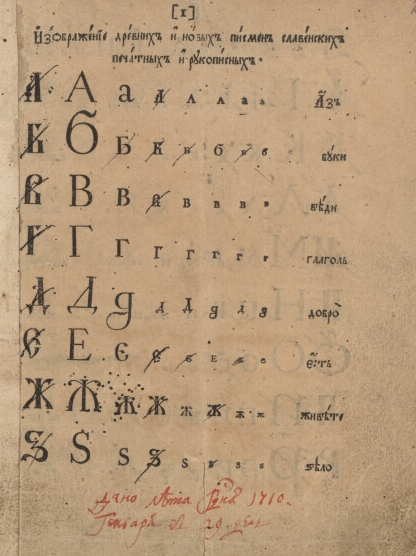 [1]
И҆зѡбраже́нїе дре́внихъ и҆ но́выхъ пи́сменъ славе́нскихъ
печа́тныхъ и҆ рꙋкопи́сныхъ.
А А а А а а а а А҆́зъ
Б Б Б Б Б б Б в Бꙋки
В В В В В в в в Вѣ́ди
Г Г Г Г Г г г г Глаголь
Д Д д Д Д д д д Добро̀
Є Е Є Є Е е е е Є҆́сть
Ж Ж Ж Ж Ж Ж ж ж Живѣ́те
Ѕ Ѕ Ѕ Ѕ Ѕ ѕ ѕ ѕ Ѕѣло̀
Дано лѣта 1710.
Генваря 29. день